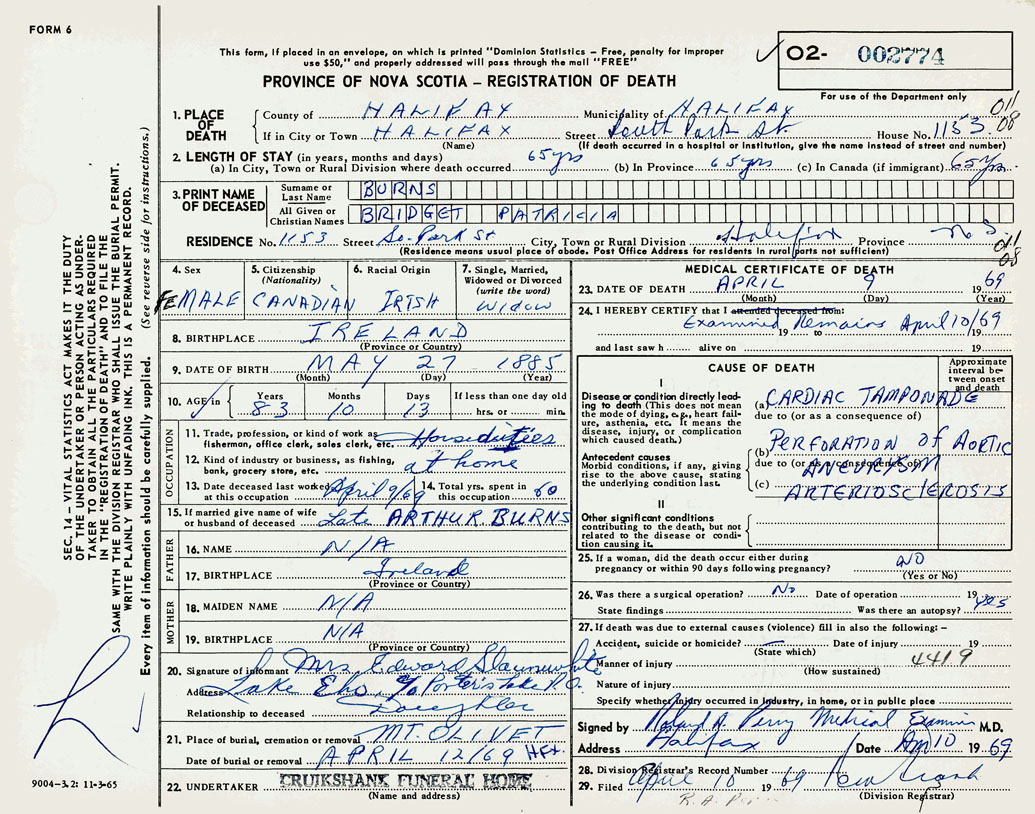 FORM 6
This form, if placed in an envelope, on which is printed "Dominion Statistics – Free, penalty for improper
use $50," and properly addressed will pass through the mail "FREE"
PROVINCE OF NOVA SCOTIA – REGISTRATION OF DEATH
02- 002774
For use of the Department only
011
08
1. PLACE OF DEATH
County of HALIFAX Municipality of HALIFAX
If in City or Town HALIFAX Street South Park St. House No. 1153
(Name) (If death occurred in a hospital or institution, give the name instead of street and number)
2. LENGTH OF STAY (in years, months and days)
(a) In City, Town or Rural Division where death occurred 65 yrs (b) In Province 65 yrs (c) In Canada (if immigrant) 65 yrs
3. PRINT NAME OF DECEASED
Surname or Last Name BURNS
All Given or Christian Names BRIDGET PATRICIA
RESIDENCE No. 1153 Street So. Park St City, Town or Rural Division Halifax Province N.S.
(Residence means usual place of abode. Post Office Address for residents in rural parts not sufficient)
011
08
4. Sex FEMALE
5. Citizenship (Nationality) CANADIAN
6. Racial Origin IRISH
7. Single, Married, Widowed or Divorced (write the word) WIDOW
8. BIRTHPLACE IRELAND
(Province or Country)
9. DATE OF BIRTH MAY 27 1885
(Month) (Day) (Year)
10. AGE in Years 83 Months 10 Days 13 If less than one day old hrs. or min.
OCCUPATION
11. Trade, profession, or kind of work as fisherman, office clerk, sales clerk, etc. Housedutees
12. Kind of industry or business, as fishing, bank, grocery store, etc. at home
13. Date deceased last worked at this occupation April 9/69
14. Total yrs. spent in this occupation 60
15. If married give name of wife or husband of deceased Late ARTHUR BURNS
FATHER
16. NAME N/A
17. BIRTHPLACE Ireland
(Province or Country)
MOTHER
18. MAIDEN NAME N/A
19. BIRTHPLACE N/A
(Province or Country)
20. Signature of informant Mrs. Edward Slaunwhite
Address Lake Eho, c/o Porter's Lake P.O.
Relationship to deceased Daughter
21. Place of burial, cremation or removal MT. OLIVET
Date of burial or removal APRIL 12/69 HFX.
22. UNDERTAKER CRUIKSHANK FUNERAL HOME
(Name and address)
MEDICAL CERTIFICATE OF DEATH
23. DATE OF DEATH APRIL 9 1969
(Month) (Day) (Year)
24. I HEREBY CERTIFY that I attended deceased from:
Examined Remains April 10/69
19 to
and last saw h alive on 19
CAUSE OF DEATH
Approximate interval between onset and death
I
Disease or condition directly leading to death (This does not mean the mode of dying, e.g., heart failure, asthenia, etc. It means the disease, injury, or complication which caused death.)
(a) CARDIAC TAMPONADE
due to (or as a consequence of)
Antecedent causes
Morbid conditions, if any, giving rise to the above cause, stating the underlying condition last.
(b) PERFORATION OF AORTIC
due to (or as a consequence of)
ANEURISM
(c) ARTERIOSCLEROSIS
II
Other significant conditions
contributing to the death, but not related to the disease or condition causing it.
25. If a woman, did the death occur either during pregnancy or within 90 days following pregnancy? NO
(Yes or No)
26. Was there a surgical operation? No Date of operation 19
State findings Was there an autopsy? yes
27. If death was due to external causes (violence) fill in also the following:–
Accident, suicide or homicide? – Date of injury 19
(State which)
4419
Manner of injury
(How sustained)
Nature of injury
Specify whether injury occurred in industry, in home, or in public place
Signed by Roland A. Perry Medical Examiner M.D.
Address Halifax Date Apr 10 1969
28. Division Registrar's Record Number
29. Filed April 10 1969
(Division Registrar)
SEC. 14 – VITAL STATISTICS ACT MAKES IT THE DUTY
OF THE UNDERTAKER OR PERSON ACTING AS UNDER-
TAKER TO OBTAIN ALL THE PARTICULARS REQUIRED
IN THE "REGISTRATION OF DEATH" AND TO FILE THE
SAME WITH THE DIVISION REGISTRAR WHO SHALL ISSUE THE BURIAL PERMIT.
WRITE PLAINLY WITH UNFADING INK. THIS IS A PERMANENT RECORD.
Every item of information should be carefully supplied. (See reverse side for instructions.)
9004–3.2: 11-3-65